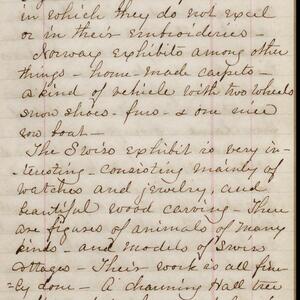 in which they do not excel
or in their embroideries –
Norway exhibits among other
things – home-made carpets –
a kind of vehicle with two wheels
snow shoes – furs – & one nice
row boat –
The Swiss exhibit is very in-
teresting – consisting mainly of
watches and jewelry, and
beautiful wood carving – There
are figures of animals of many
kinds – and models of Swiss
cottages – Their work is all fine-
ly done – A charming Hall tree